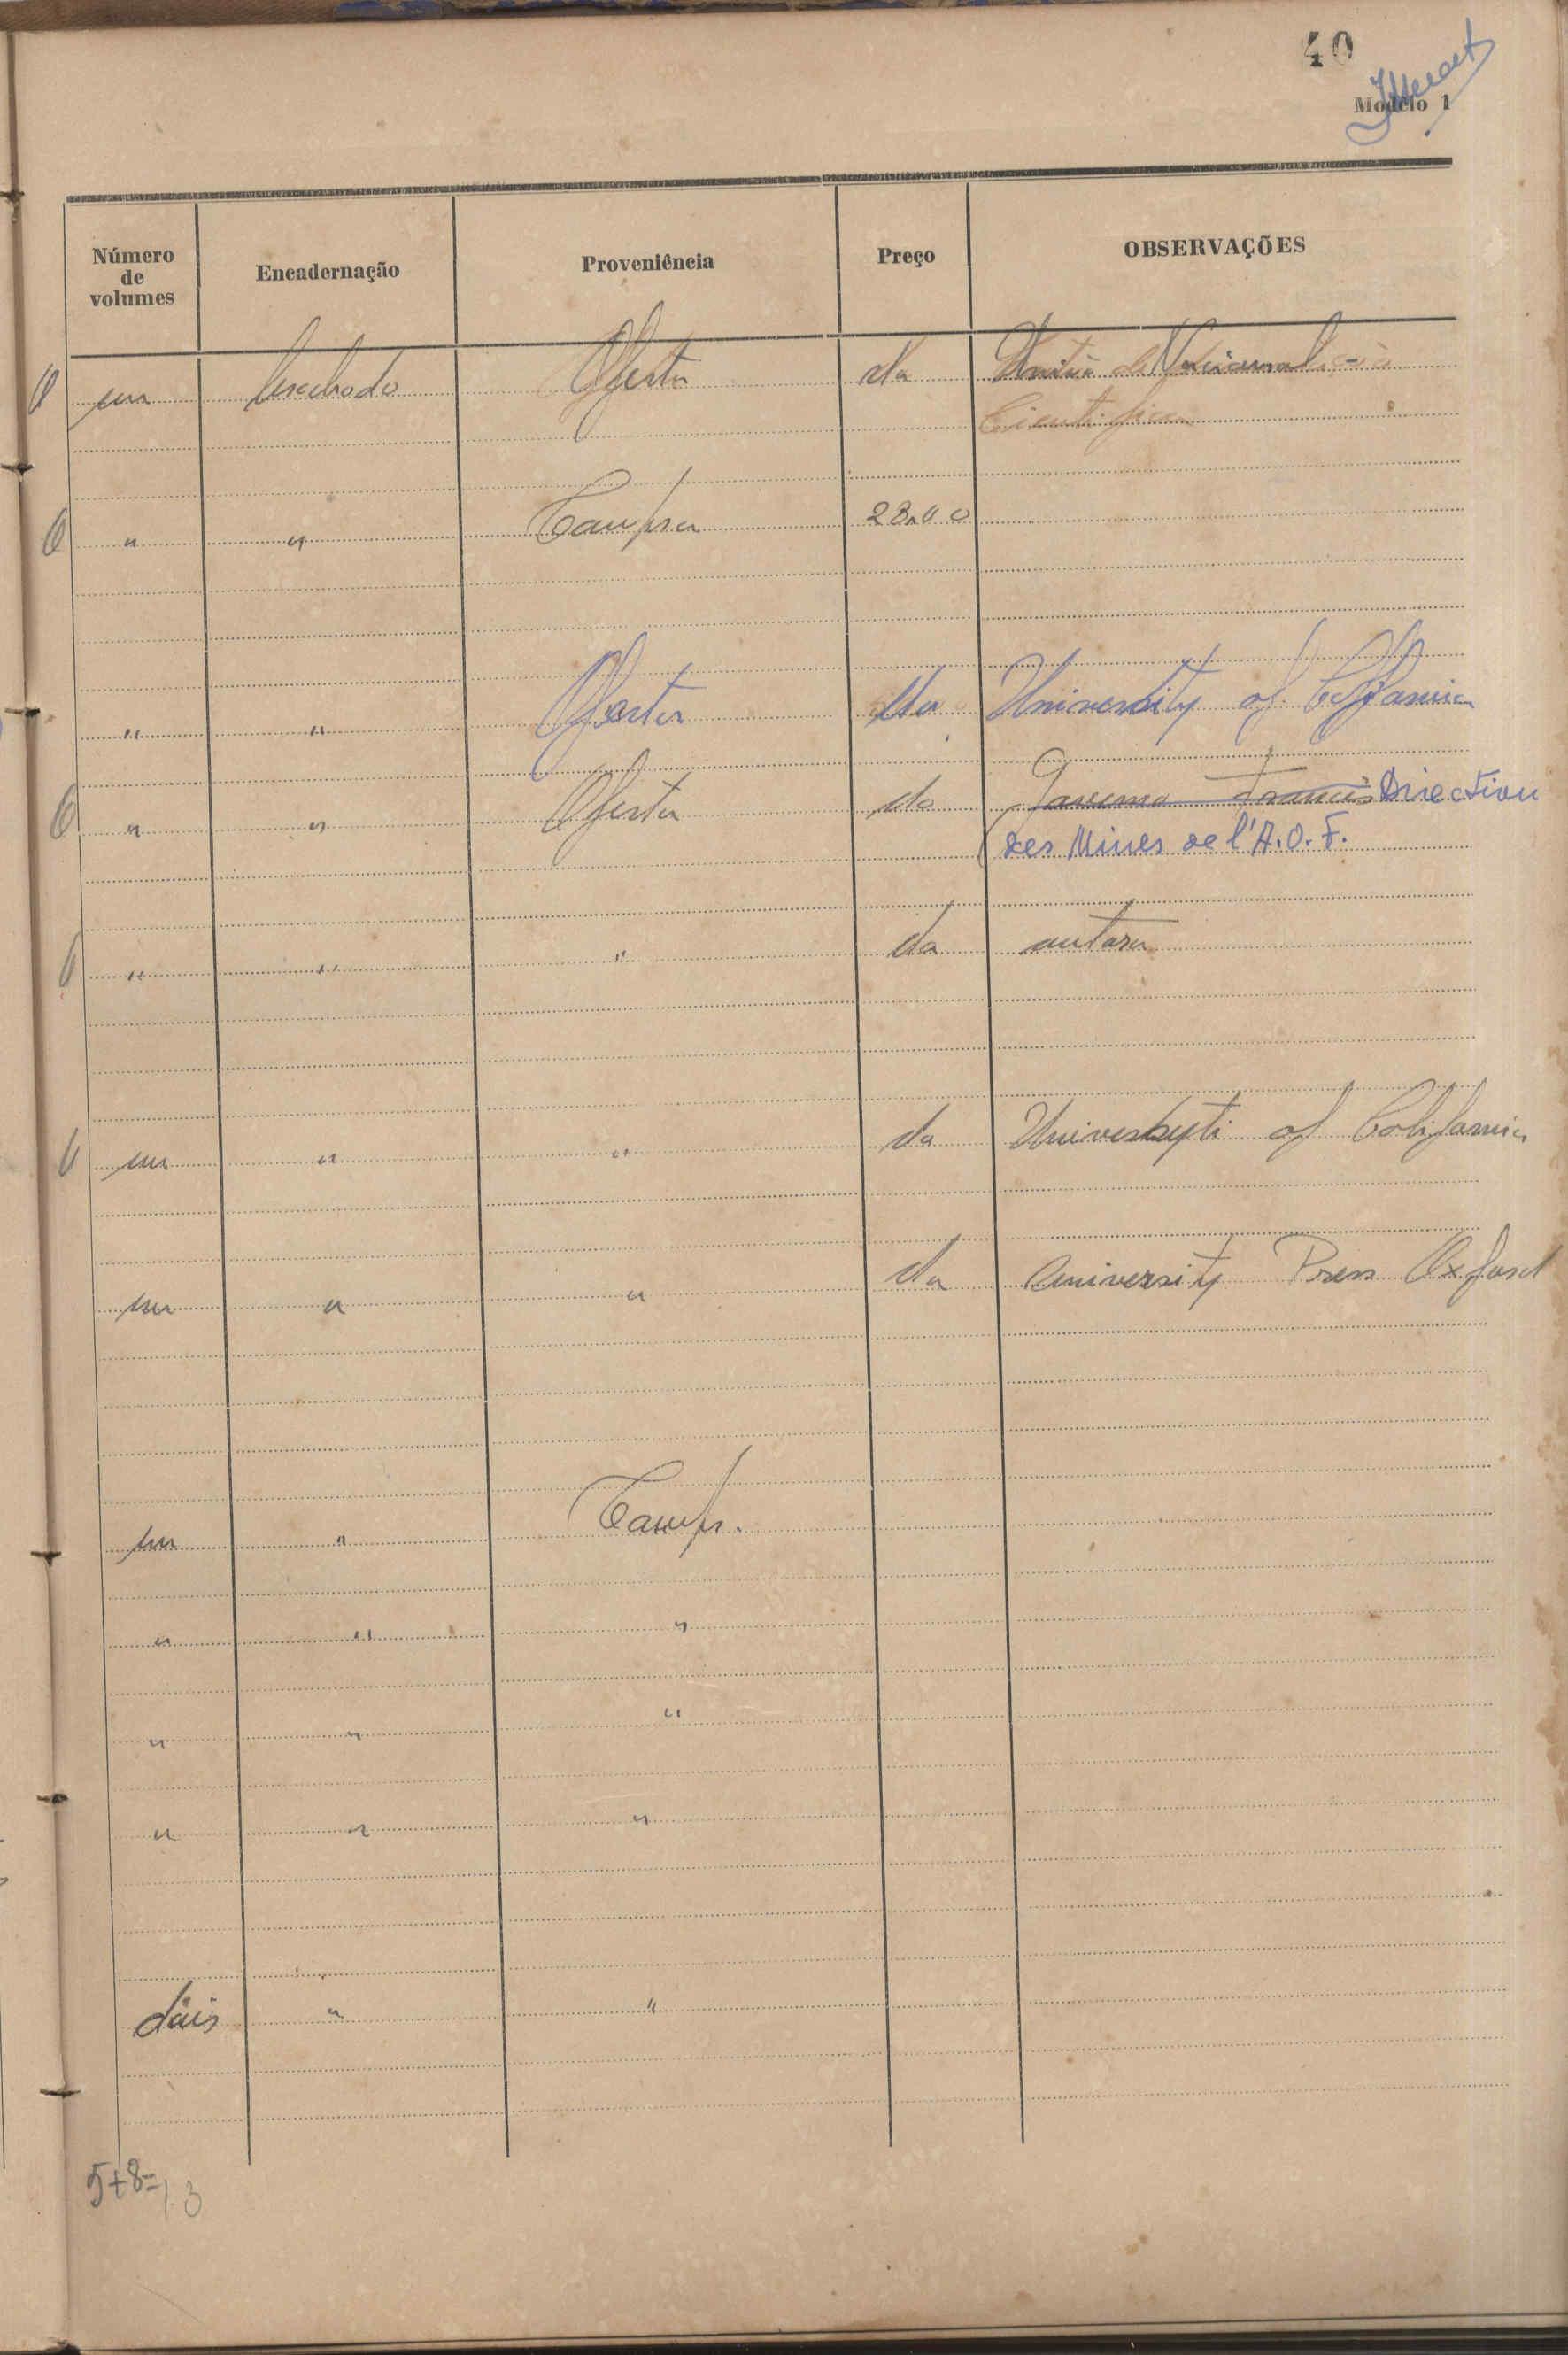 40
Modelo 1
Número de volumes Encadernação Proveniência Preço OBSERVAÇÕES
um brochado Oferta da
Cientifica
" " Compra 28.00
" " Oferta da University of California
" " Oferta do Governo Francês Direction
des Mines de l'A.O.F.
" " " da autora
um " " da Universyti of California
um " " da University Press Oxford
um " Comp.
" " "
" " "
" " "
dois " "
5+8=13